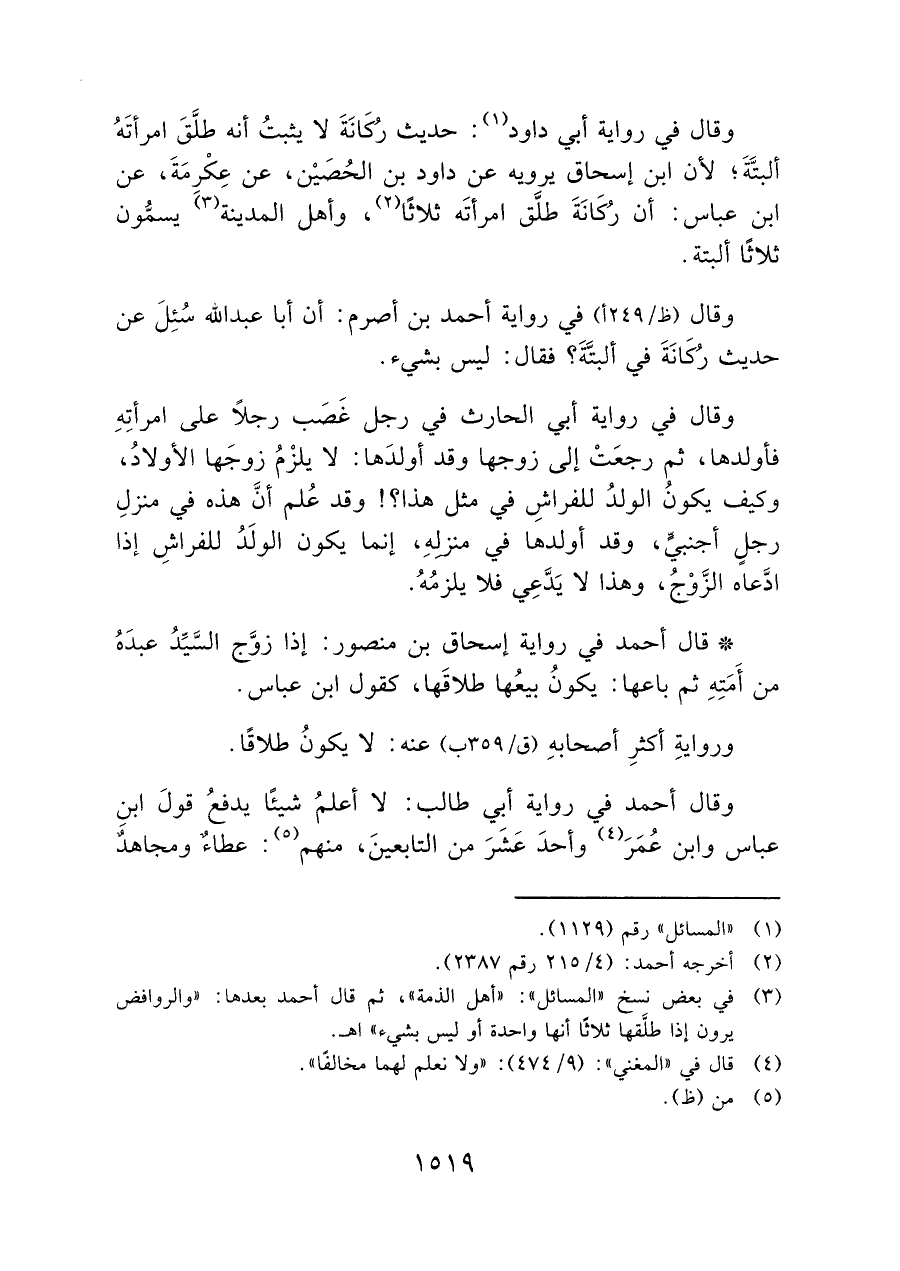 وقال في رواية أبي داود(١): حديث رُكَانَةَ لا يثبتُ أنه طلَّقَ امرأتَهُ
ألبتَّةَ؛ لأن ابن إسحاق يرويه عن داود بن الحُصَيْن، عن عِكْرِمَةَ، عن
ابن عباس: أن رُكَانَةَ طلَّق امرأتَه ثلاثًا(٢)، وأهل المدينة(٣) يسمُّون
ثلاثًا ألبتة.
وقال (ظ/٢٤٩أ) في رواية أحمد بن أصرم: أن أبا عبدالله سُئِلَ عن
حديث رُكَانَةَ في ألبتَّةَ؟ فقال: ليس بشيء.
وقال في رواية أبي الحارث في رجل غَصَب رجلاً على امرأتِهِ
فأولدها، ثم رجعَتْ إلى زوجها وقد أولدَها: لا يلزْمُ زوجَها الأولادُ،
وكيف يكونُ الولدُ للفراشِ في مثل هذا؟! وقد عُلم أنَّ هذه في منزلِ
رجلٍ أجنبيٍّ، وقد أولدها في منزلِهِ، إنما يكون الولَدُ للفراشِ إذا
ادَّعاه الزَّوْجُ، وهذا لا يَدَّعِي فلا يلزمُهُ.
* قال أحمد في رواية إسحاق بن منصور: إذا زوَّج السَّيِّدُ عبدَهُ
من أَمَتِهِ ثم باعها: يكونُ بيعُها طلاقَها، كقول ابن عباس.
وروايةِ أكثرِ أصحابهِ (ق/٣٥٩ب) عنه: لا يكونُ طلاقًا.
وقال أحمد في رواية أبي طالب: لا أعلمُ شيئًا يدفعُ قولَ ابنِ
عباس وابن عُمَرَ(٤) وأحدَ عَشَرَ من التابعينَ، منهم(٥): عطاءٌ ومجاهدٌ
(١) «المسائل» رقم (١١٢٩).
(٢) أخرجه أحمد: (٤/ ٢١٥ رقم ٢٣٨٧).
(٣) في بعض نسخ «المسائل»: «أهل الذمة»، ثم قال أحمد بعدها: «والروافض
يرون إذا طلَّقها ثلاثًا أنها واحدة أو ليس بشيء» اهـ.
(٤) قال في «المغني»: (٩/ ٤٧٤): «ولا نعلم لهما مخالفًا».
(٥) من (ظ).
١٥١٩